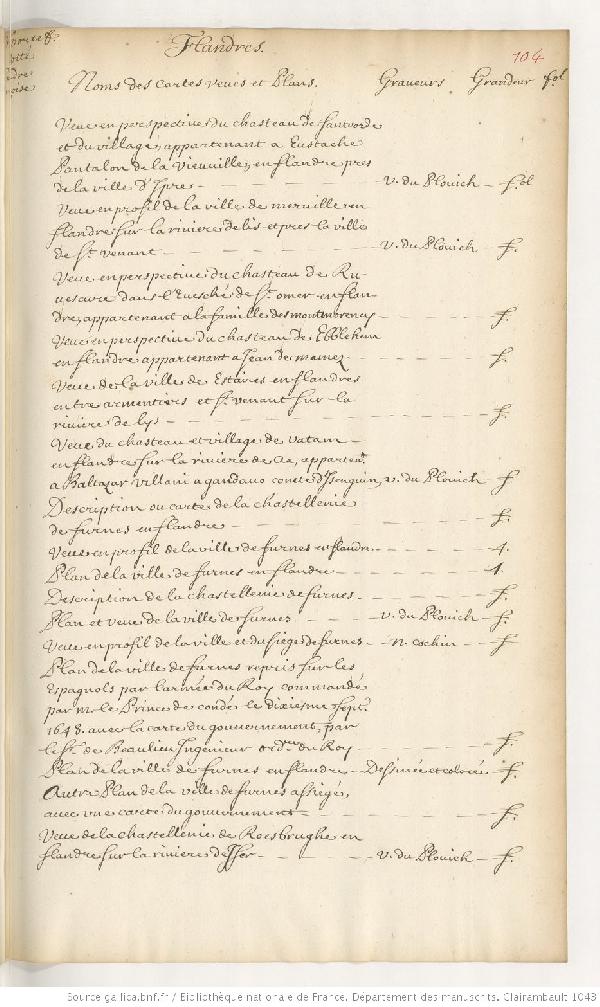 Flandres.
104
Noms des cartes veues et Plans. Graveurs Grandeur fol
Veue en perspective du chasteau de
et du village, appartenant a Eustache
Pantalon de la Vieuville, en flandre pres
de la ville d'Ipre - v. du Plouich - fol
Veue en profil de la ville de merville en
flandre sur la riviere de lis et pres la ville
de St. venant - v. du Plouich f.
Veue en perspective du chasteau de Ru-
dans l'Evesché de St. omer en flan-
dre, appartenant a la famille des montmorency f.
Veue en perspective du chasteau de Ebblehem
en flandre appartenant a Jean de mamez - f.
Veue de la ville de Estaires en flandres
entre armentiers et St. venant sur la
riviere de lys - f.
Veue du chasteau et village de vatam -
en flandre sur la riviere de Aa, apparten.t
a Baltazar villani a gandavo comte d'Isenguin, v. du Plouich f
Description ou carte de la chastellenie
de furnes en flandre - f.
Veue en profil de la ville de furnes en flandre - 4.
Plan de la ville de furnes en flandre - 4.
Description de la chastellenie de furnes - f.
Plan et veue de la ville de furnes v. du Plouich - f.
Veue en profil de la ville et du siege de furnes - n. cochin - f
Plan de la ville de furnes repris sur les
Espagnols par l'armée du Roy commandé
par mr. le Prince de condé le dixiesme Sept.
1648. avec la carte du gouvernement, par
le Sr. de Beaulieu Ingenieur ord.re du Roy f.
Plan de la ville de furnes en flandre - Dessinée et colorée - f.
Autre Plan de la ville de furnes assiegée,
avec une carte du gouvernement - f.
Veue de la chastellenie de Reesbrughe en
flandre sur la riviere d'Iser - v. du Plouich - f.
Source gallica.bnf.fr / Bibliothèque nationale de France. Département des manuscrits. Clairambault 1043